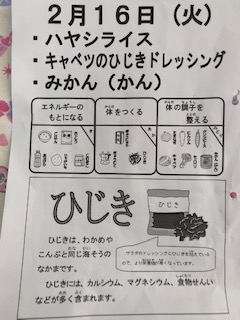 ２月１６日（火）
・ハヤシライス
・キャベツのひじきドレッシング
・みかん（かん）
エネルギーの
もとになる
体をつくる
体の調子を
整える
ひじき
ひじき
ひじきは、わかめや
こんぶと同じ海そうの
なかまです。
サラダのドレッシングにひじきを
ひじきには、カルシウム、マグネシウム、食物せんい
などが多く含まれます。